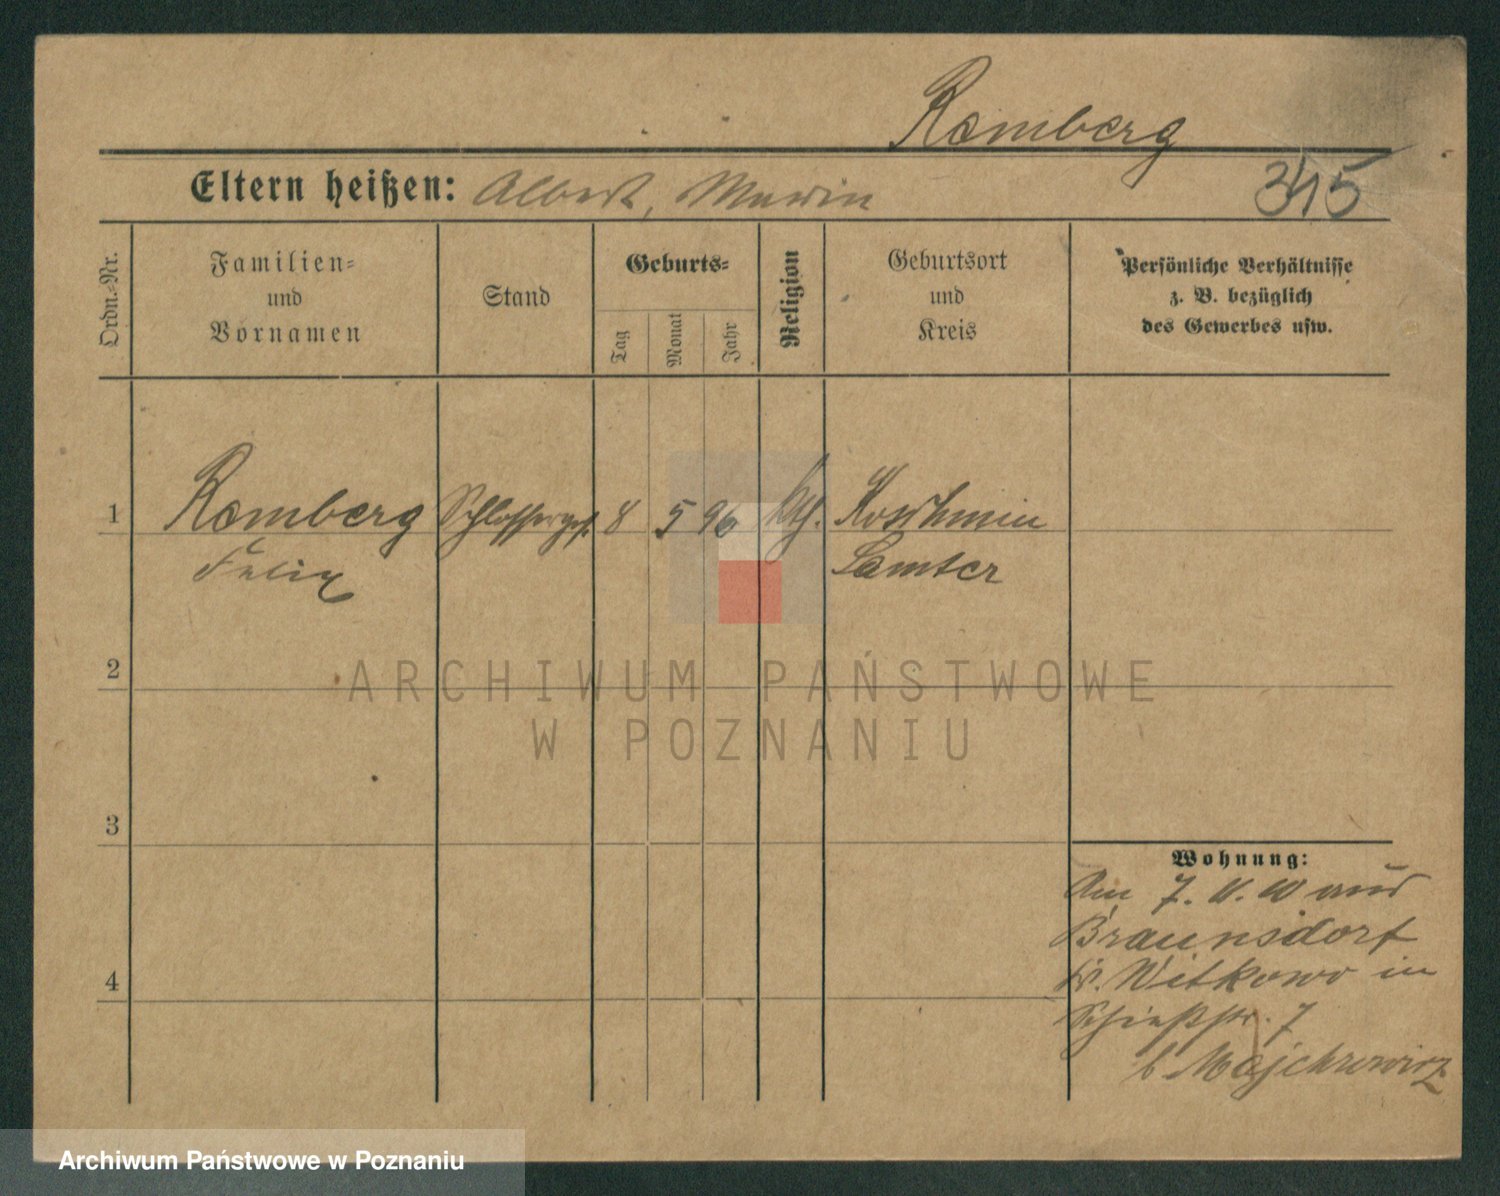 Ramberg
Eltern heißen: Albert, Maria
345
Ordn.-Nr.
Familien-
und
Vornamen
Stand
Geburts-
Tag
Monat
Jahr
Religion
Geburtsort
und
Kreis
Persönliche Verhältnisse
z. B. bezüglich
des Gewerbes usw.
1
Ramberg Schlosserges. 8 5 96 kth. Koschmin
Felix Samter
2
3
4
Wohnung:
Am 7. 11. 10 aus
Braunsdorf
Kr. Witkowo in
Schießstr. 7
b Majchrowicz
ARCHIWUM PAŃSTWOWE
W POZNANIU
Archiwum Państwowe w Poznaniu